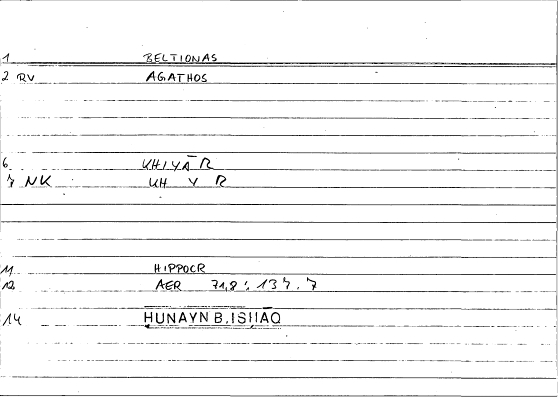 1 BELTIONAS
2 RV AGATHOS
6 KHIYĀR
7 NK KH Y R
11 HIPPOCR
12 AER 71,8 : 137.7
14 HUNAYN B. ISHAQ